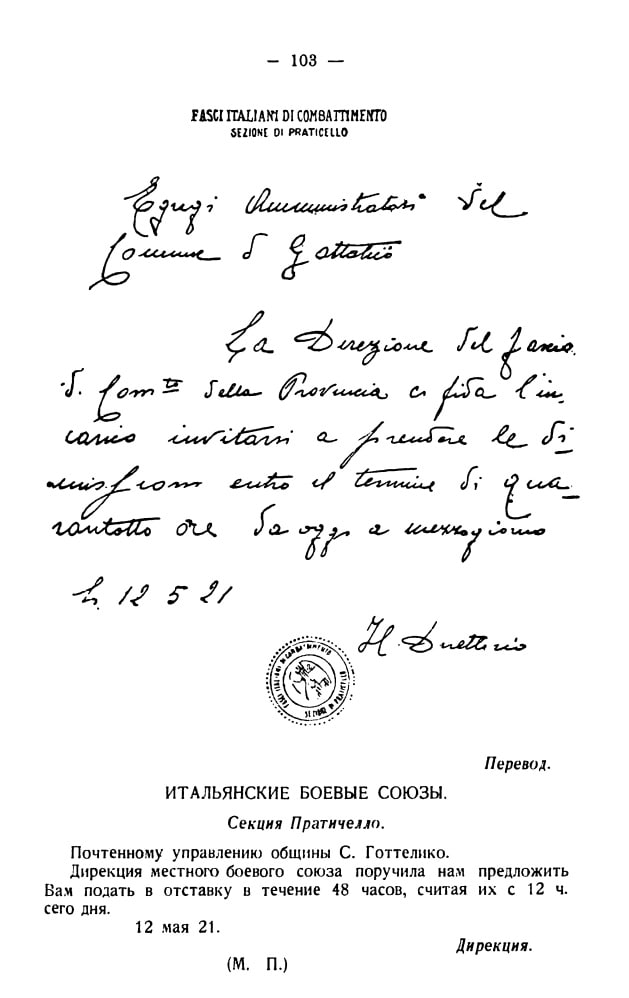 — 103 —
FASCI ITALIANI DI COMBATTIMENTO
SEZIONE DI PRATICELLO
Egregi Amministratori del
Comune di Gattatico
La Direzione del fascio
di Com.to della Provincia ci fida l'in-
carico invitarvi a prendere le di-
missioni entro il termine di qua-
rantotto ore da oggi a mezzogiorno
li 12 5 21
Il Direttorio
FASCI ITALIANI DI COMBATTIMENTO
SEZIONE DI PRATICELLO
Перевод.
ИТАЛЬЯНСКИЕ БОЕВЫЕ СОЮЗЫ.
Секция Пратичелло.
Почтенному управлению общины С. Готтелико.
Дирекция местного боевого союза поручила нам предложить
Вам подать в отставку в течение 48 часов, считая их с 12 ч.
сего дня.
12 мая 21.
Дирекция.
(М. П.)